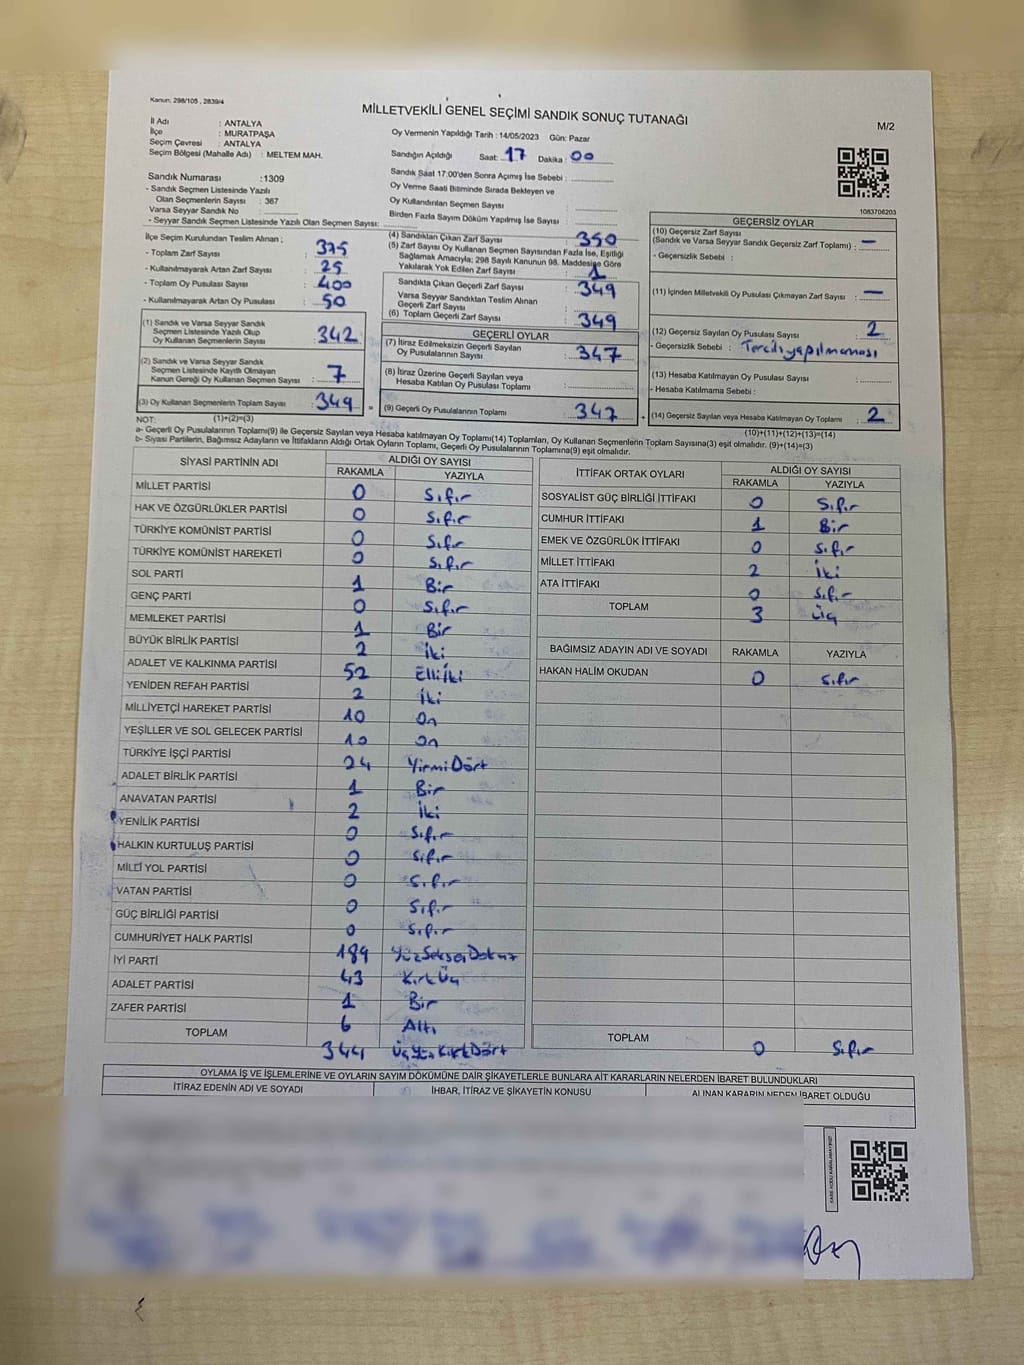 Kanun: 298/105 , 2839/4
MİLLETVEKİLİ GENEL SEÇİMİ SANDIK SONUÇ TUTANAĞI
M/2
İl Adı : ANTALYA
İlçe : MURATPAŞA
Seçim Çevresi : ANTALYA
Seçim Bölgesi (Mahalle Adı) : MELTEM MAH.
Oy Vermenin Yapıldığı Tarih : 14/05/2023 Gün: Pazar
Sandığın Açıldığı Saat: 17 Dakika : 00
Sandık Saat 17:00'den Sonra Açımış İse Sebebi :
Oy Verme Saati Bitiminde Sırada Bekleyen ve
Oy Kullandırılan Seçmen Sayısı :
Birden Fazla Sayım Döküm Yapılmış İse Sayısı :
1083708203
Sandık Numarası : 1309
- Sandık Seçmen Listesinde Yazılı
Olan Seçmenlerin Sayısı : 367
Varsa Seyyar Sandık No :
- Seyyar Sandık Seçmen Listesinde Yazılı Olan Seçmen Sayısı:
İlçe Seçim Kurulundan Teslim Alınan ;
- Toplam Zarf Sayısı : 375
- Kullanılmayarak Artan Zarf Sayısı : 25
- Toplam Oy Pusulası : 400
- Kullanılmayarak Artan Oy Pusulası : 50
(1) Sandık ve Varsa Seyyar Sandık
Seçmen Listesinde Yazılı Olup
Oy Kullanan Seçmenlerin Sayısı : 342
(2) Sandık ve Varsa Seyyar Sandık
Seçmen Listesinde Kayıtlı Olmayan
Kanun Gereği Oy Kullanan Seçmen Sayısı : 7
(3) Oy Kullanan Seçmenlerin Toplam Sayısı : 349 =
(4) Sandıktan Çıkan Zarf Sayısı : 350
(5) Zarf Sayısı Oy Kullanan Seçmen Sayısından Fazla İse, Eşitliği
Sağlamak Amacıyla; 298 Sayılı Kanunun 98. Maddesine Göre
Yakılarak Yok Edilen Zarf Sayısı : 1
Sandıkta Çıkan Geçerli Zarf Sayısı : 349
Varsa Seyyar Sandıktan Teslim Alınan
Geçerli Zarf Sayısı
(6) Toplam Geçerli Zarf Sayısı : 349
GEÇERLİ OYLAR
(7) İtiraz Edilmeksizin Geçerli Sayılan
Oy Pusulalarının Sayısı : 347
(8) İtiraz Üzerine Geçerli Sayılan veya
Hesaba Katılan Oy Pusulası Toplamı :
(9) Geçerli Oy Pusulalarının Toplamı : 347 +
GEÇERSİZ OYLAR
(10) Geçersiz Zarf Sayısı
(Sandık ve Varsa Seyyar Sandık Geçersiz Zarf Toplamı) : -
- Geçersizlik Sebebi :
(11) İçinden Milletvekili Oy Pusulası Çıkmayan Zarf Sayısı : -
(12) Geçersiz Sayılan Oy Pusulası Sayısı : 2
- Geçersizlik Sebebi : Tercih yapılmaması
(13) Hesaba Katılmayan Oy Pusulası Sayısı :
- Hesaba Katılmama Sebebi :
(14) Geçersiz Sayılan veya Hesaba Katılmayan Oy Toplamı : 2
NOT: (1)+(2)=(3)
(10)+(11)+(12)+(13)=(14)
a- Geçerli Oy Pusulalarının Toplamı(9) ile Geçersiz Sayılan veya Hesaba katılmayan Oy Toplamı(14) Toplamları, Oy Kullanan Seçmenlerin Toplam Sayısına(3) eşit olmalıdır. (9)+(14)=(3)
b- Siyasi Partilerin, Bağımsız Adayların ve İttifakların Aldığı Ortak Oyların Toplamı, Geçerli Oy Pusulalarının Toplamına(9) eşit olmalıdır.
SİYASİ PARTİNİN ADI ALDIĞI OY SAYISI
RAKAMLA YAZIYLA
MİLLET PARTİSİ 0 Sıfır
HAK VE ÖZGÜRLÜKLER PARTİSİ 0 Sıfır
TÜRKİYE KOMÜNİST PARTİSİ 0 Sıfır
TÜRKİYE KOMÜNİST HAREKETİ 0 Sıfır
SOL PARTİ 1 Bir
GENÇ PARTİ 0 Sıfır
MEMLEKET PARTİSİ 1 Bir
BÜYÜK BİRLİK PARTİSİ 2 İki
ADALET VE KALKINMA PARTİSİ 52 Elliİki
YENİDEN REFAH PARTİSİ 2 İki
MİLLİYETÇİ HAREKET PARTİSİ 10 On
YEŞİLLER VE SOL GELECEK PARTİSİ 10 On
TÜRKİYE İŞÇİ PARTİSİ 24 YirmiDört
ADALET BİRLİK PARTİSİ 1 Bir
ANAVATAN PARTİSİ 2 İki
YENİLİK PARTİSİ 0 Sıfır
HALKIN KURTULUŞ PARTİSİ 0 Sıfır
MİLLİ YOL PARTİSİ 0 Sıfır
VATAN PARTİSİ 0 Sıfır
GÜÇ BİRLİĞİ PARTİSİ 0 Sıfır
CUMHURİYET HALK PARTİSİ 189 YüzSeksenDokuz
İYİ PARTİ 43 KırkÜç
ADALET PARTİSİ 1 Bir
ZAFER PARTİSİ 6 Altı
TOPLAM 344 ÜçYüzKırkDört
İTTİFAK ORTAK OYLARI ALDIĞI OY SAYISI
RAKAMLA YAZIYLA
SOSYALİST GÜÇ BİRLİĞİ İTTİFAKI 0 Sıfır
CUMHUR İTTİFAKI 1 Bir
EMEK VE ÖZGÜRLÜK İTTİFAKI 0 Sıfır
MİLLET İTTİFAKI 2 İki
ATA İTTİFAKI 0 Sıfır
TOPLAM 3 Üç
BAĞIMSIZ ADAYIN ADI VE SOYADI RAKAMLA YAZIYLA
HAKAN HALİM OKUDAN 0 Sıfır
TOPLAM 0 Sıfır
OYLAMA İŞ VE İŞLEMLERİNE VE OYLARIN SAYIM DÖKÜMÜNE DAİR ŞİKAYETLERLE BUNLARA AİT KARARLARIN NELERDEN İBARET BULUNDUKLARI
İTİRAZ EDENİN ADI VE SOYADI İHBAR, İTİRAZ VE ŞİKAYETİN KONUSU ALINAN KARARIN NEDEN İBARET OLDUĞU